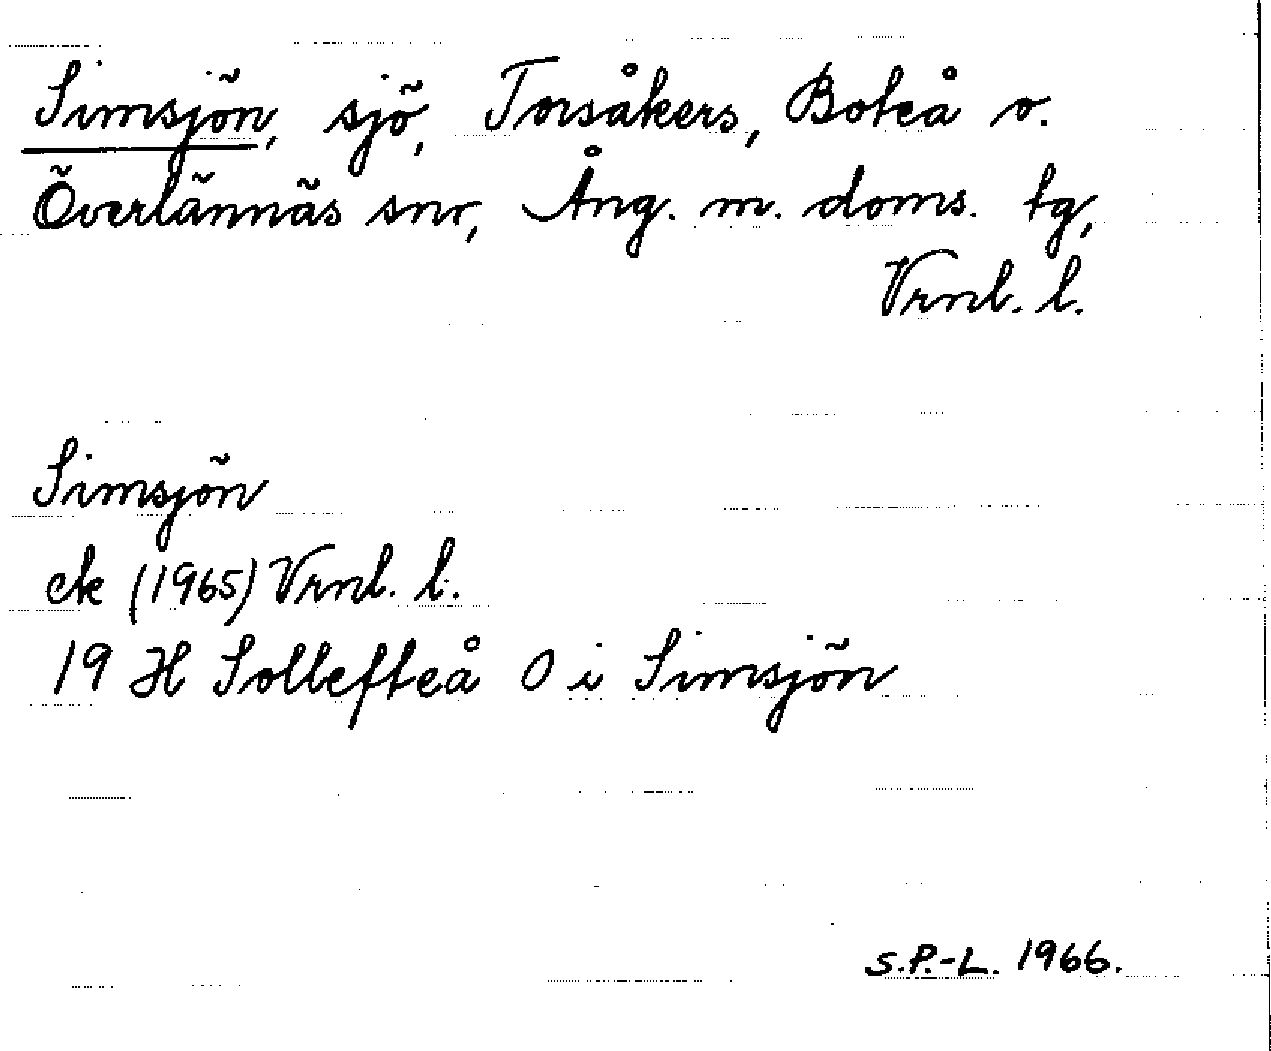 Simsjön, sjö, Torsåkers, Boteå o.
Överlännäs snr, Ång. m. doms. tg,
Vrnl. l.
Simsjön
ek (1965) Vrnl. l.
19 H Sollefteå O i Simsjön
S.P.-L. 1966.